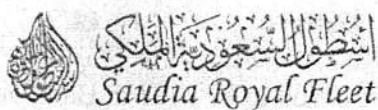 اسطول السعودية الملكي
Saudia Royal Fleet